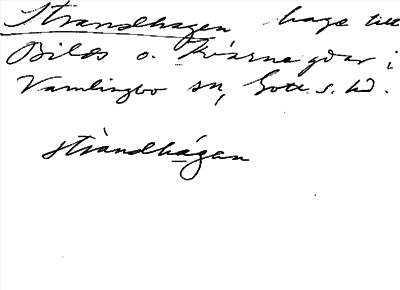 Strandhagen hage till
Bilds o. Kvarna gdar i
Vamlingbo sn, Gotl. s. hd.
stràndhá̱gan